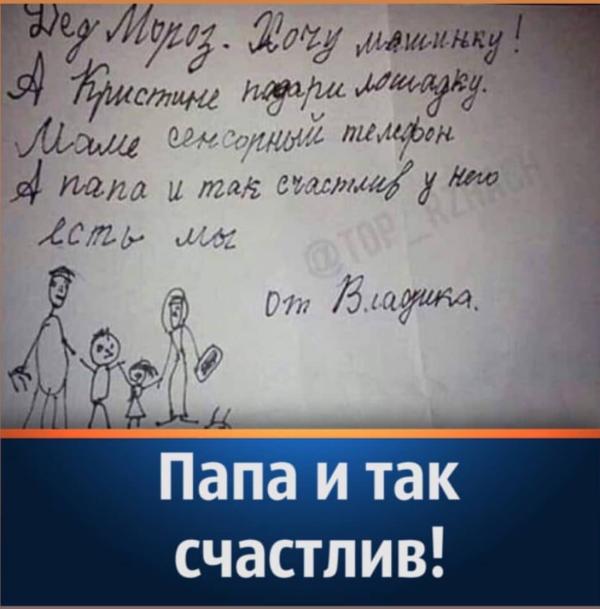 Дед Мороз. Хочу машинку!
А Кристине подари лошадку.
Маме сенсорный телефон
А папа и так счастлив у него
есть мы
@TOP_RZHACH
От Владика.
Папа и так
счастлив!